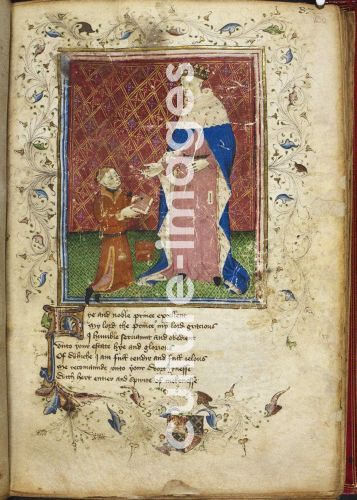 cuttlefish-images
hye and noble prince excellent
My lord the Prince my lord gracious
I humble servaunt and obedient
Unto your estate hye and glorious
Of Whiche I am full tendir and full Jelous
me recomaunde unto your Worthynesse
With hert entier and spirite of mekenesse